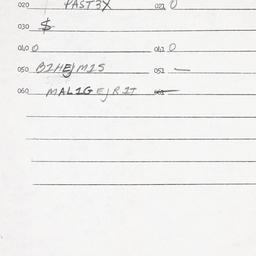 020 PAST3X 021 0
030 $
040 0 041 0
050 BIHEJMIS 051 —
060 MALIGEJRIT 061